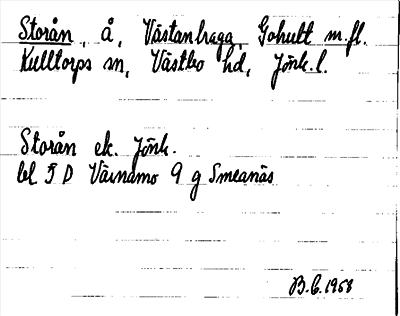 Storån, å, Västanhaga, Gohult m.fl.
Kulltorps sn, Västbo hd, Jönk. l.
Storån ek. Jönk.
bl 5 D Värnamo 9 g Smeanäs
B.C. 1968